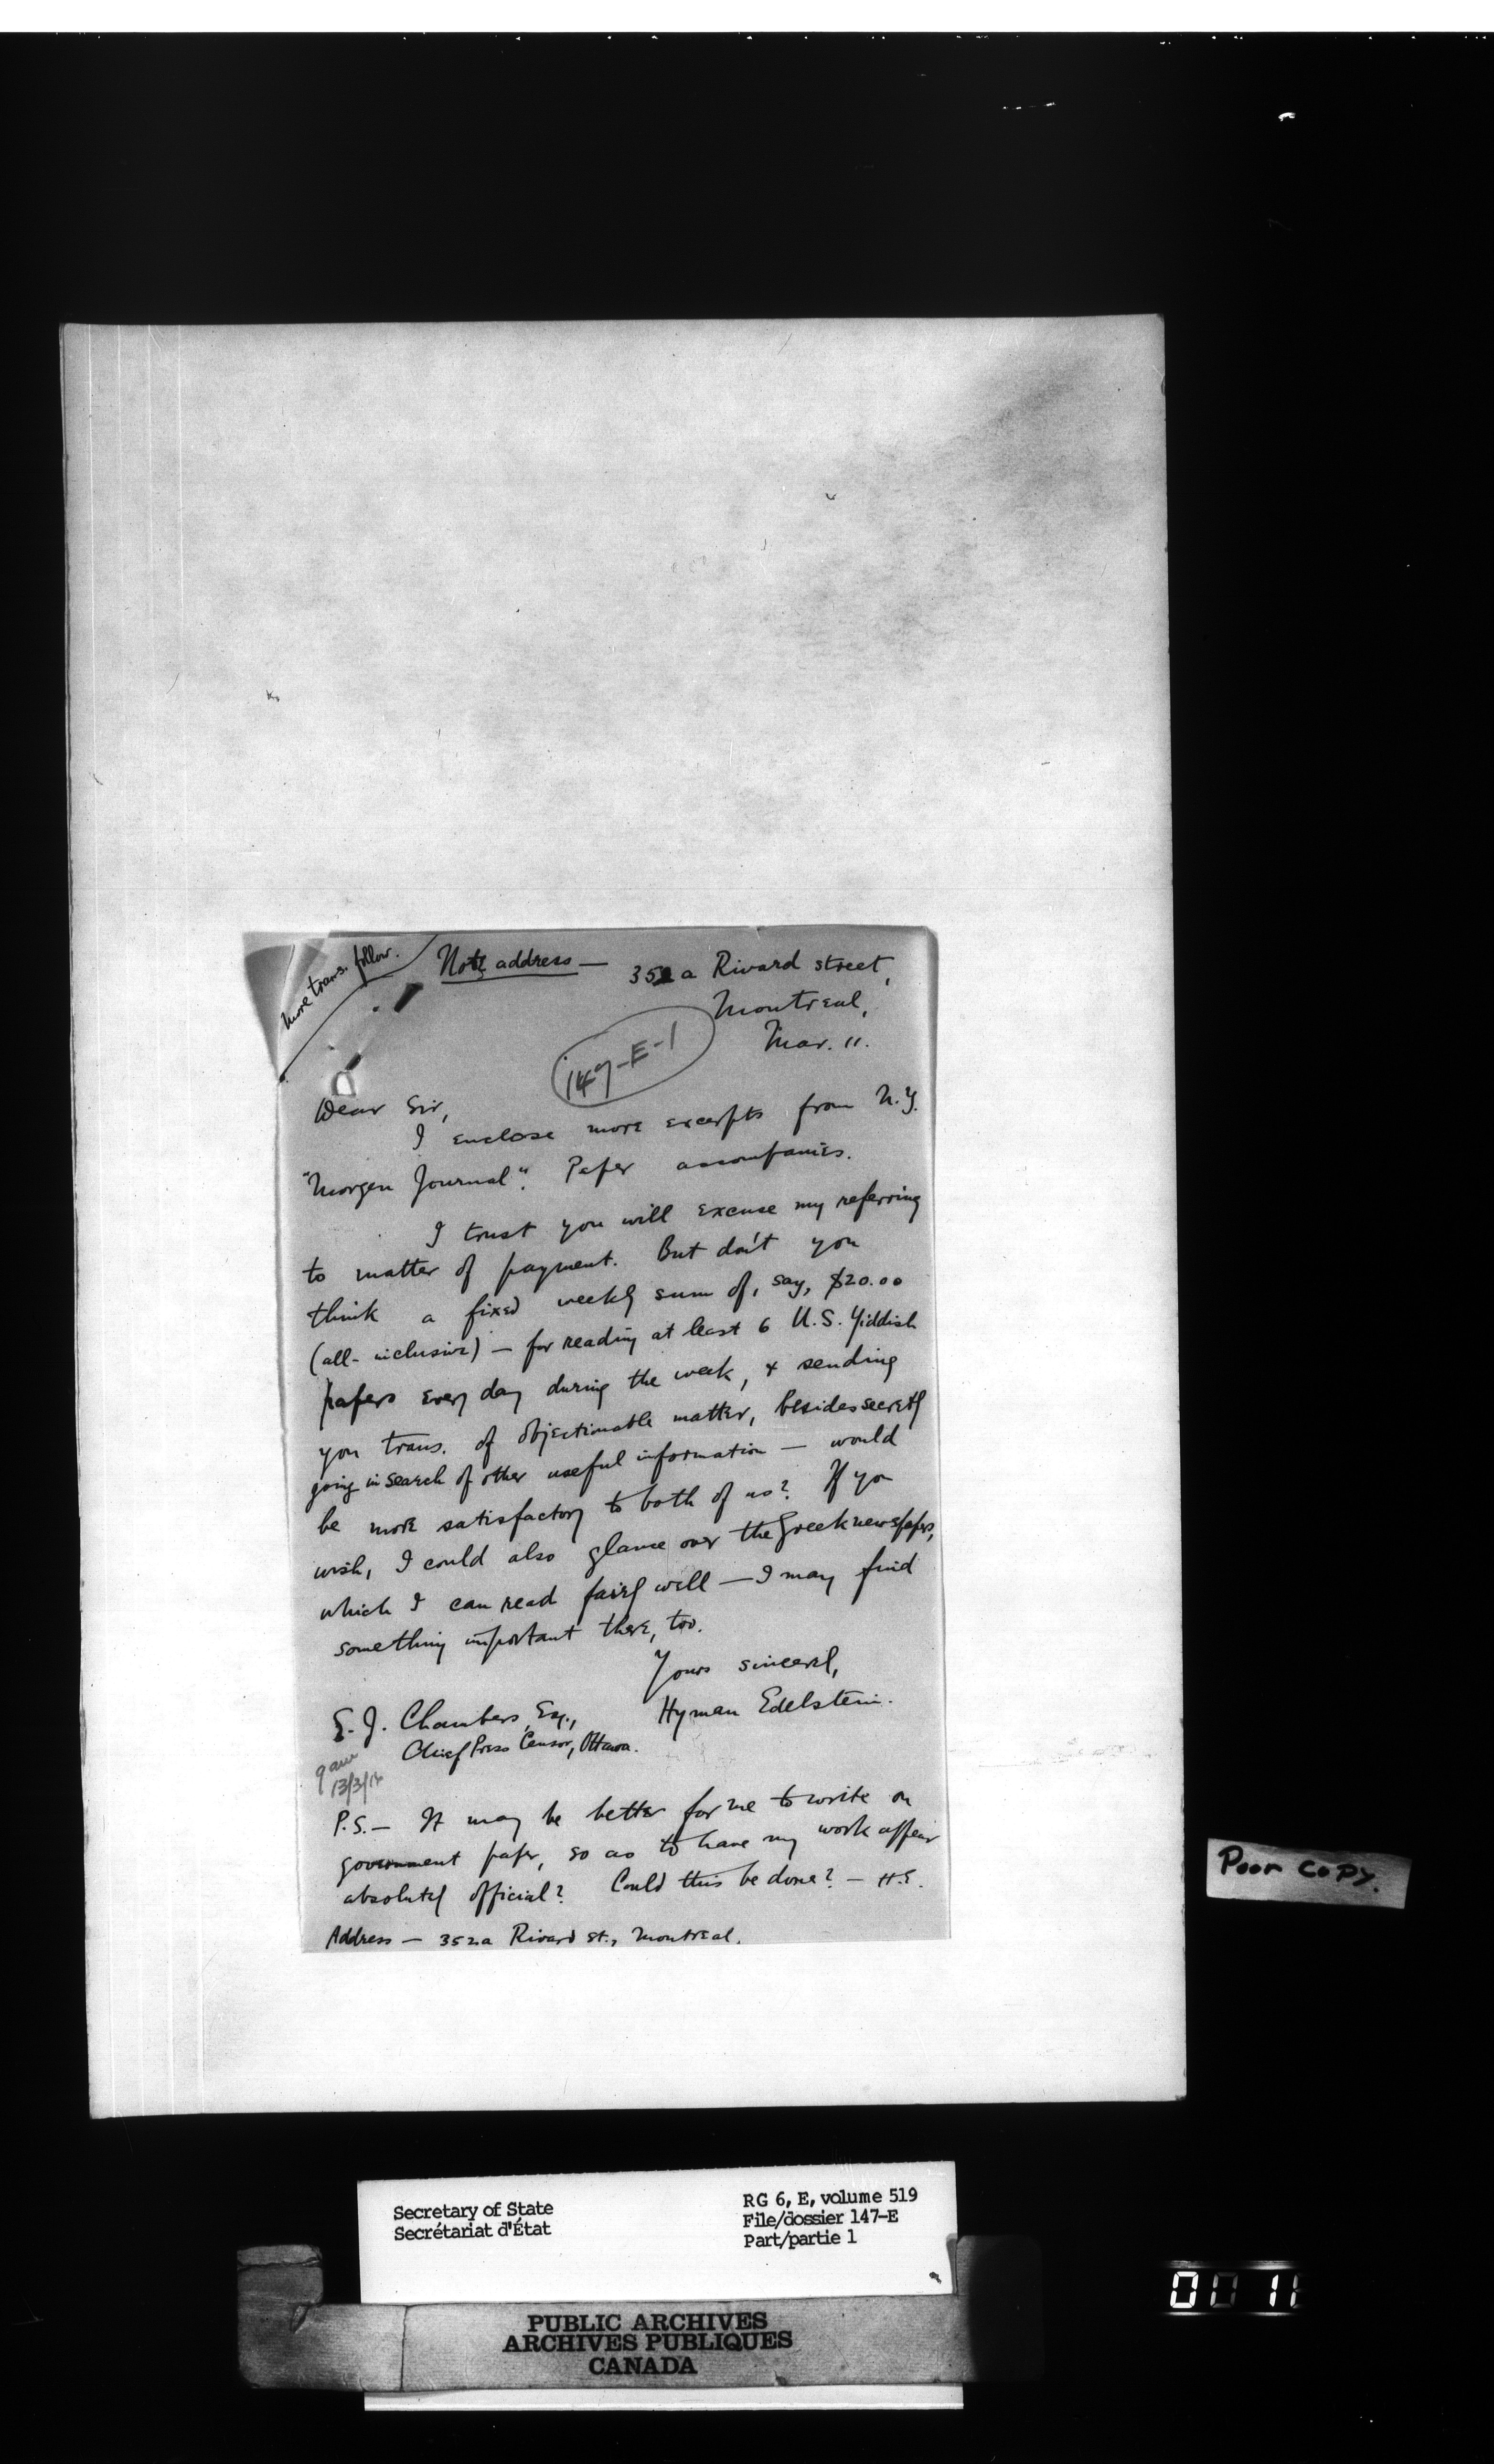 more trans. follow.
Note address — 352a Rivard street,
Montreal,
Mar. 11.
147-E-1
Dear Sir,
I enclose more excerpts from N.Y.
"Morgen Journal". Paper accompanies.
I trust you will excuse my referring
to matter of payment. But don't you
think a fixed weekly sum of, say, $20.00
(all-inclusive) — for reading at least 6 U.S. Yiddish
papers every day during the week, & sending
you trans. of objectionable matter, besides secretly
going in search of other useful information — would
be more satisfactory to both of us? If you
wish, I could also glance over the Greek newspapers,
which I can read fairly well — I may find
something important there, too.
Yours sincerely,
Hyman Edelstein.
E. J. Chambers, Esq.,
Chief Press Censor, Ottawa.
13/3/18
P.S. — It may be better for me to write on
government paper, so as to have my work appear
absolutely official? Could this be done? — H.E.
Address — 352a Rivard st., Montreal.
Poor copy.
Secretary of State
Secrétariat d'État
RG 6, E, volume 519
File/dossier 147-E
Part/partie 1
PUBLIC ARCHIVES
ARCHIVES PUBLIQUES
CANADA
00 11